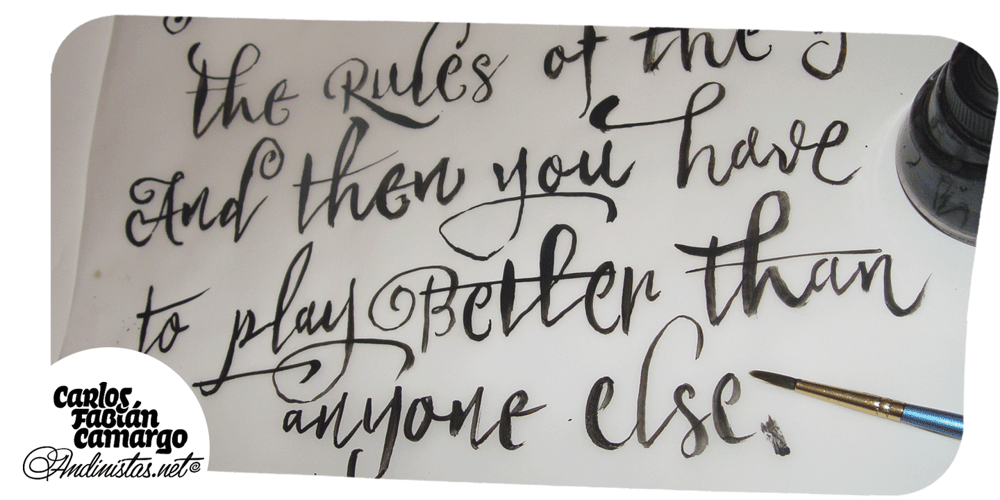 the Rules of the g
And then you have
to play Better than
anyone else.
Carlos
Fabián
Camargo
Andinistas.net©